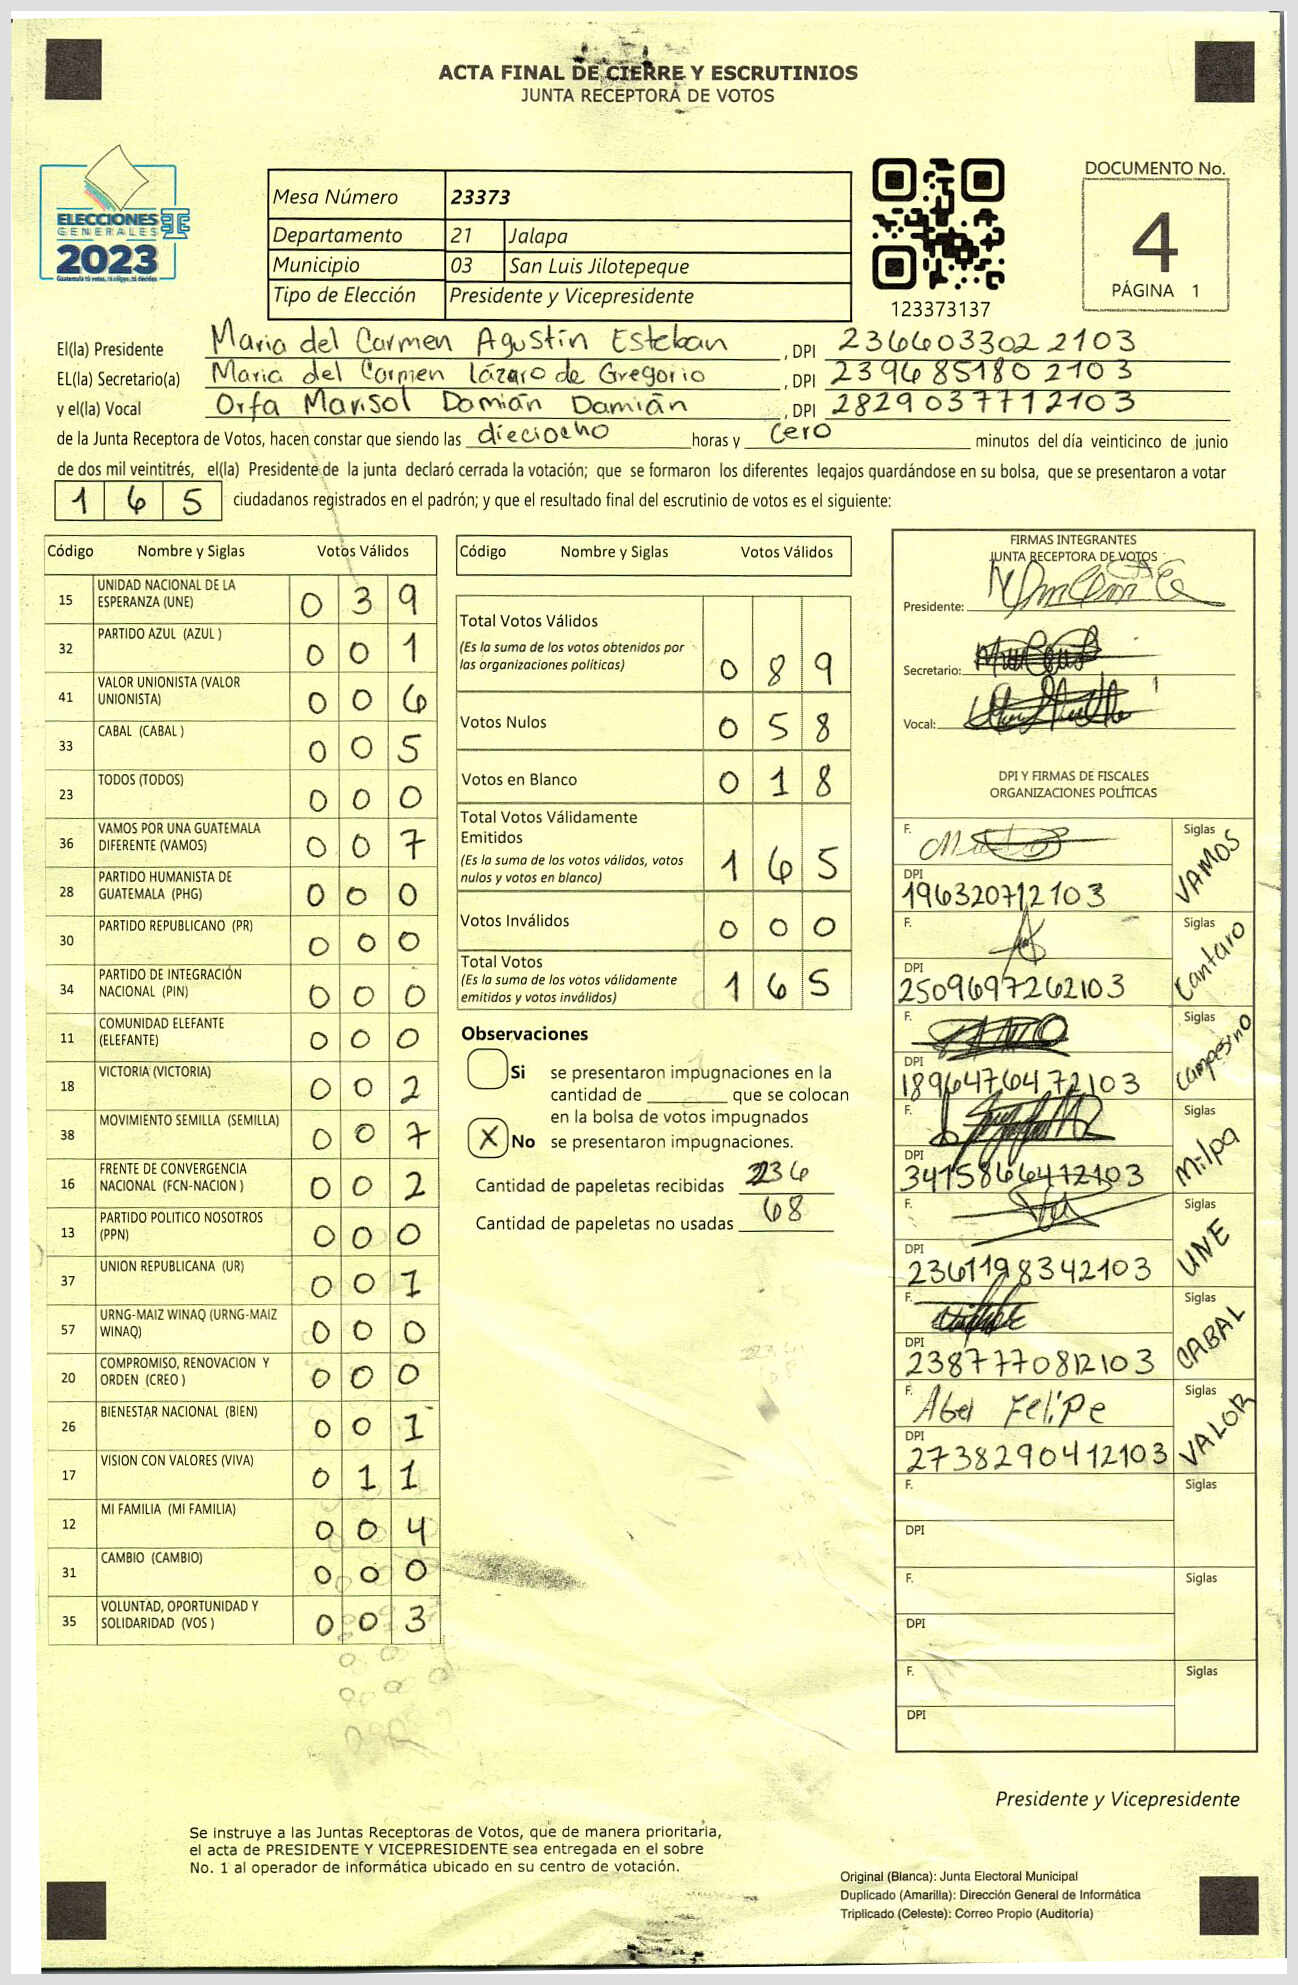 ACTA FINAL DE CIERRE Y ESCRUTINIOS
JUNTA RECEPTORA DE VOTOS
ELECCIONES
GENERALES
2023
Guatemala tú votas, tú eliges, tú decides
Mesa Número 23373
Departamento 21 Jalapa
Municipio 03 San Luis Jilotepeque
Tipo de Elección Presidente y Vicepresidente
123373137
DOCUMENTO No.
4
PÁGINA 1
El(la) Presidente Maria del Carmen Agustín Esteban, DPI 2366033022103
EL(la) Secretario(a) Maria del Carmen Lázaro de Gregorio, DPI 2396851802103
y el(la) Vocal Orfa Marisol Damián Damián, DPI 2829037712103
de la Junta Receptora de Votos, hacen constar que siendo las dieciocho horas y cero minutos del día veinticinco de junio
de dos mil veintitrés, el(la) Presidente de la junta declaró cerrada la votación; que se formaron los diferentes legajos guardándose en su bolsa, que se presentaron a votar
165 ciudadanos registrados en el padrón; y que el resultado final del escrutinio de votos es el siguiente:
Código Nombre y Siglas Votos Válidos
15 UNIDAD NACIONAL DE LA ESPERANZA (UNE) 0 3 9
32 PARTIDO AZUL (AZUL ) 0 0 1
41 VALOR UNIONISTA (VALOR UNIONISTA) 0 0 6
33 CABAL (CABAL ) 0 0 5
23 TODOS (TODOS) 0 0 0
36 VAMOS POR UNA GUATEMALA DIFERENTE (VAMOS) 0 0 7
28 PARTIDO HUMANISTA DE GUATEMALA (PHG) 0 0 0
30 PARTIDO REPUBLICANO (PR) 0 0 0
34 PARTIDO DE INTEGRACIÓN NACIONAL (PIN) 0 0 0
11 COMUNIDAD ELEFANTE (ELEFANTE) 0 0 0
18 VICTORIA (VICTORIA) 0 0 2
38 MOVIMIENTO SEMILLA (SEMILLA) 0 0 7
16 FRENTE DE CONVERGENCIA NACIONAL (FCN-NACION ) 0 0 2
13 PARTIDO POLITICO NOSOTROS (PPN) 0 0 0
37 UNION REPUBLICANA (UR) 0 0 1
57 URNG-MAIZ WINAQ (URNG-MAIZ WINAQ) 0 0 0
20 COMPROMISO, RENOVACION Y ORDEN (CREO ) 0 0 0
26 BIENESTAR NACIONAL (BIEN) 0 0 1
17 VISION CON VALORES (VIVA) 0 1 1
12 MI FAMILIA (MI FAMILIA) 0 0 4
31 CAMBIO (CAMBIO) 0 0 0
35 VOLUNTAD, OPORTUNIDAD Y SOLIDARIDAD (VOS ) 0 0 3
Código Nombre y Siglas Votos Válidos
Total Votos Válidos
(Es la suma de los votos obtenidos por
las organizaciones políticas) 0 8 9
Votos Nulos 0 5 8
Votos en Blanco 0 1 8
Total Votos Válidamente
Emitidos
(Es la suma de los votos válidos, votos
nulos y votos en blanco) 1 6 5
Votos Inválidos 0 0 0
Total Votos
(Es la suma de los votos válidamente
emitidos y votos inválidos) 1 6 5
Observaciones
Si se presentaron impugnaciones en la
cantidad de ________ que se colocan
en la bolsa de votos impugnados
X No se presentaron impugnaciones.
Cantidad de papeletas recibidas 236
Cantidad de papeletas no usadas 68
FIRMAS INTEGRANTES
JUNTA RECEPTORA DE VOTOS
Presidente:
Secretario:
Vocal:
DPI Y FIRMAS DE FISCALES
ORGANIZACIONES POLÍTICAS
F. Siglas VAMOS
DPI 196320712103
F. Siglas Cantaro
DPI 2509697262103
F. Siglas Campesino
DPI 1896476472103
F. Siglas Milpa
DPI 3415866412103
F. Siglas UNE
DPI 2361198342103
F. Siglas CABAL
DPI 2387770812103
F. Abel Felipe Siglas VALOR
DPI 2738290412103
F. Siglas
DPI
F. Siglas
DPI
F. Siglas
DPI
Presidente y Vicepresidente
Se instruye a las Juntas Receptoras de Votos, que de manera prioritaria,
el acta de PRESIDENTE Y VICEPRESIDENTE sea entregada en el sobre
No. 1 al operador de informática ubicado en su centro de votación.
Original (Blanca): Junta Electoral Municipal
Duplicado (Amarilla): Dirección General de Informática
Triplicado (Celeste): Correo Propio (Auditoría)